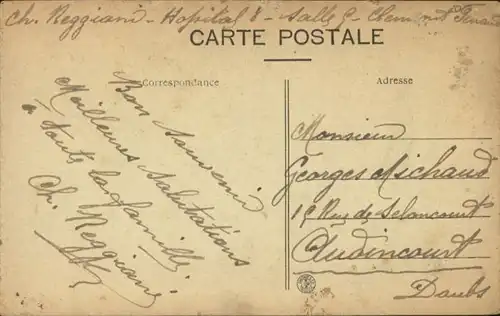 Ch. Reggiani - Hopital 8 - Salle 9 - Chem
CARTE POSTALE
Correspondance
Adresse
Bon Souvenir
Meilleures Salutations
a toute la famille
Ch. Reggiani
Monsieur
Georges Michaud
19 Rue de Seloncourt
Audincourt
Doubs